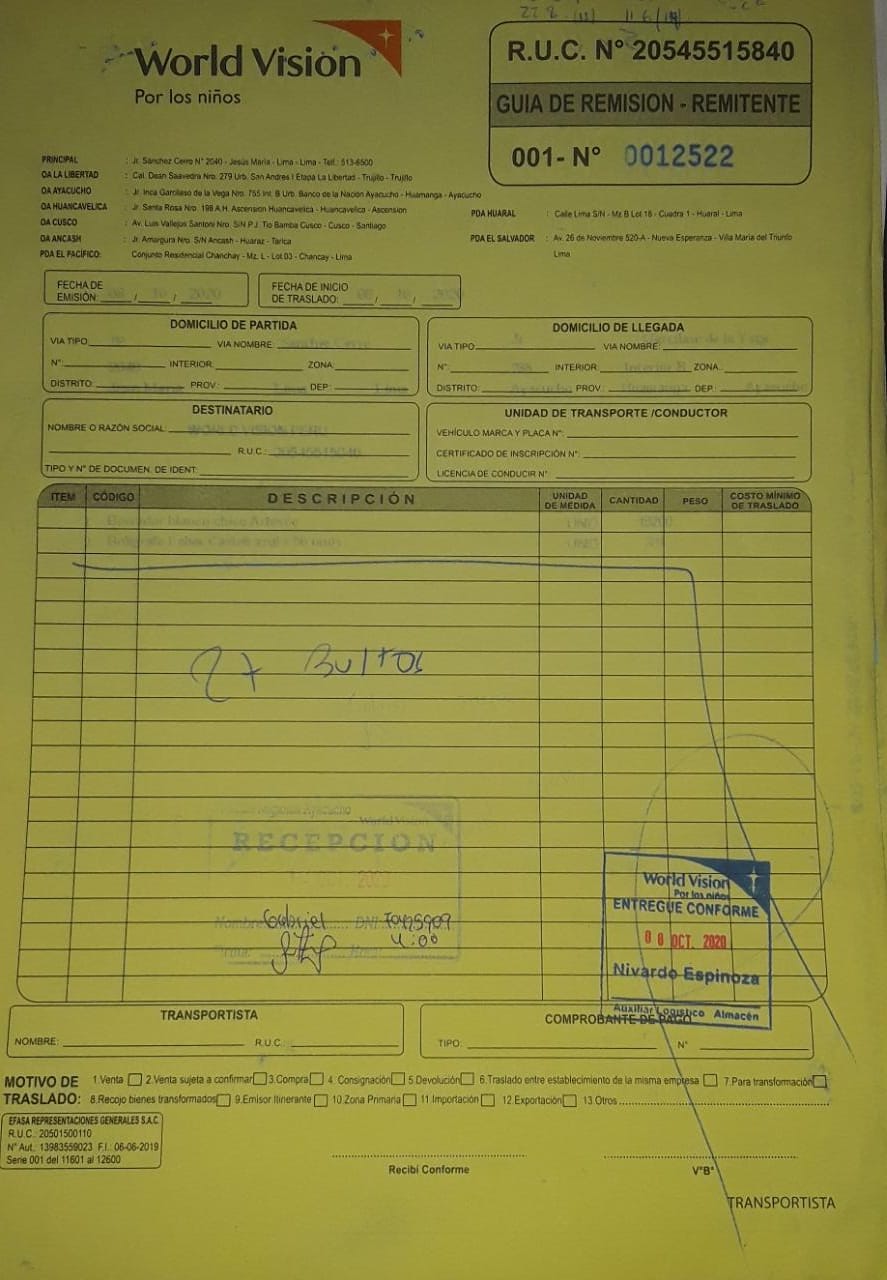 World Vision
Por los niños
R.U.C. N° 20545515840
GUIA DE REMISION - REMITENTE
001- N° 0012522
PRINCIPAL : Jr. Sánchez Cerro N° 2040 - Jesús María - Lima - Lima - Telf.: 513-6500
OA LA LIBERTAD : Cal. Dean Saavedra Nro. 279 Urb. San Andres I Etapa La Libertad - Trujillo - Trujillo
OA AYACUCHO : Jr. Inca Garcilaso de la Vega Nro. 755 Int. B Urb. Banco de la Nación Ayacucho - Huamanga - Ayacucho
OA HUANCAVELICA : Jr. Santa Rosa Nro. 198 A.H. Ascension Huancavelica - Huancavelica - Ascension
OA CUSCO : Av. Luis Vallejos Santoni Nro. S/N P.J. Tio Bamba Cusco - Cusco - Santiago
OA ANCASH : Jr. Amargura Nro. S/N Ancash - Huaraz - Tarica
PDA EL PACÍFICO: Conjunto Residencial Chanchay - Mz. L - Lot.03 - Chancay - Lima
PDA HUARAL : Calle Lima S/N - Mz B Lot 18 - Cuadra 1 - Huaral - Lima
PDA EL SALVADOR : Av. 26 de Noviembre 520-A - Nueva Esperanza - Villa Maria del Triunfo
Lima
FECHA DE EMISIÓN: 08 / 10 / 2020
FECHA DE INICIO DE TRASLADO: 08 / 10 / 2020
DOMICILIO DE PARTIDA
VIA TIPO: VIA NOMBRE:
N°: INTERIOR: ZONA:
DISTRITO: PROV.: Lima DEP.: Lima
DOMICILIO DE LLEGADA
VIA TIPO: VIA NOMBRE:
N°: INTERIOR: Interior B ZONA.:
DISTRITO: Ayacucho PROV.: Huamanga DEP.: Ayacucho
DESTINATARIO
NOMBRE O RAZÓN SOCIAL: WORLD VISION PERU
R.U.C.: 20545515840
TIPO Y N° DE DOCUMEN. DE IDENT:
UNIDAD DE TRANSPORTE /CONDUCTOR
VEHÍCULO MARCA Y PLACA N°:
CERTIFICADO DE INSCRIPCIÓN N°:
LICENCIA DE CONDUCIR N°:
ITEM CÓDIGO DESCRIPCIÓN UNIDAD DE MEDIDA CANTIDAD PESO COSTO MÍNIMO DE TRASLADO
27 Bultos
World Vision
RECEPCION
Nombre: Gabriel DNI 70425909
4:00
World Vision
Por los niños
ENTREGUE CONFORME
08 OCT. 2020
Nivardo Espinoza
Auxiliar Logístico Almacén
TRANSPORTISTA
NOMBRE: R.U.C.:
COMPROBANTE DE PAGO
TIPO: N°
MOTIVO DE TRASLADO:
1.Venta 2.Venta sujeta a confirmar 3.Compra 4. Consignación 5.Devolución 6.Traslado entre establecimiento de la misma empresa 7.Para transformación
8.Recojo bienes transformados 9.Emisor Itinerante 10.Zona Primaria 11.Importación 12.Exportación 13.Otros
EFASA REPRESENTACIONES GENERALES S.A.C.
R.U.C.: 20501500110
N° Aut.: 13983559023 F.I.: 06-06-2019
Serie 001 del 11601 al 12600
Recibí Conforme
V°B°
TRANSPORTISTA